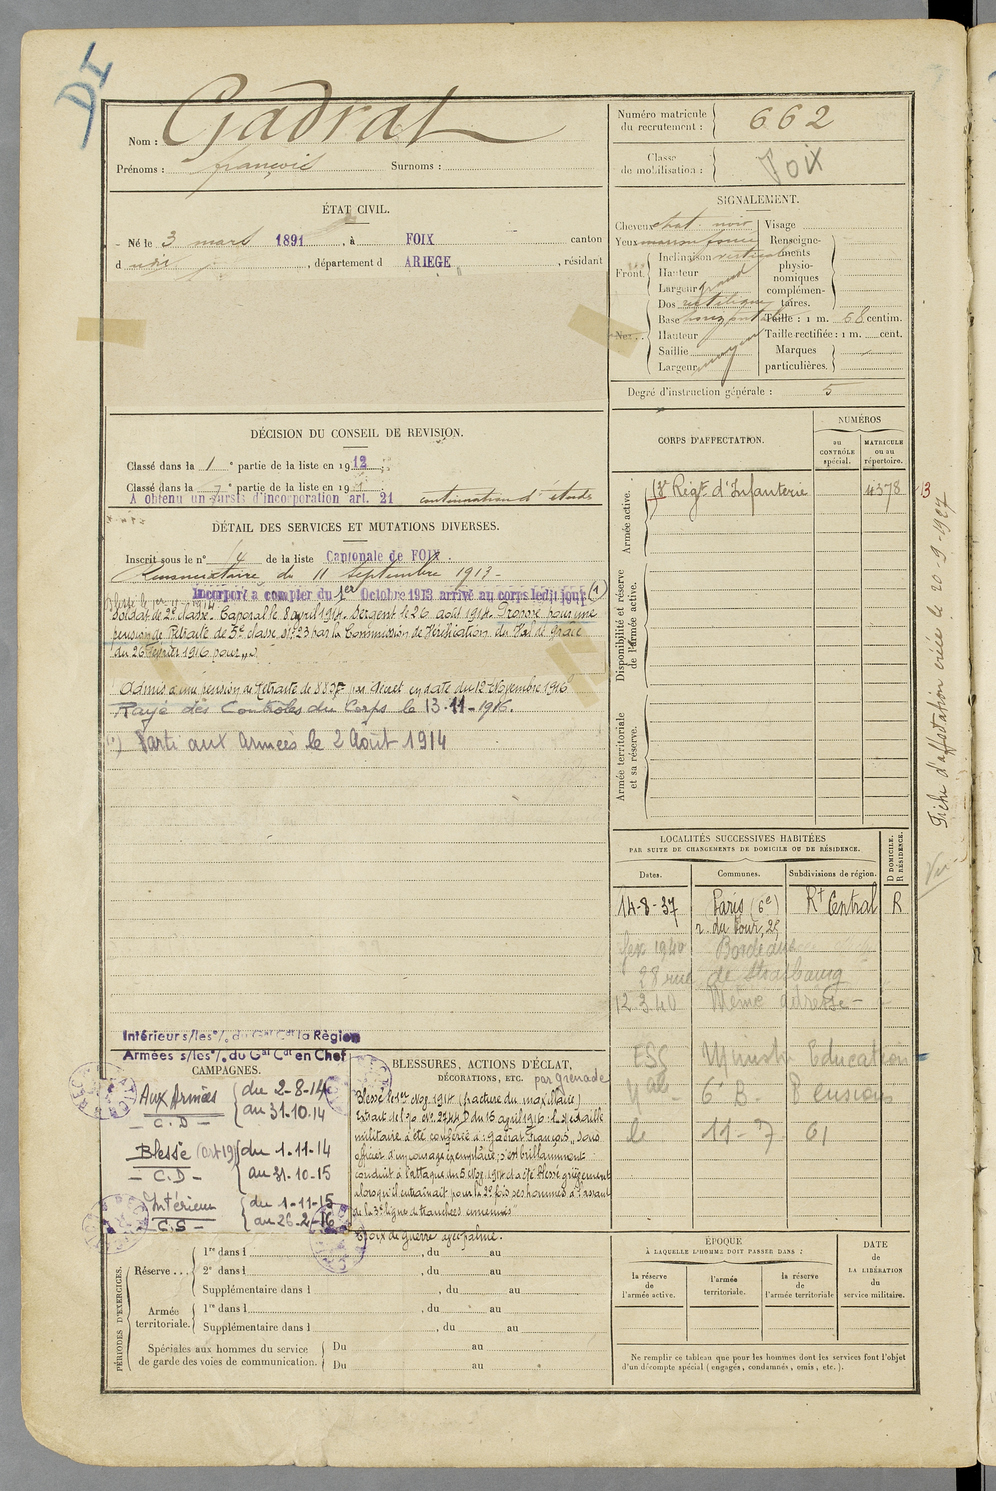 Nom : Gadrat
Prénoms : françois Surnoms :
ÉTAT CIVIL.
Né le 3 mars 1891, à FOIX canton
d udit, département d ARIEGE, résidant
DÉCISION DU CONSEIL DE REVISION.
Classé dans la 1e partie de la liste en 1912
Classé dans la e partie de la liste en 19
A obtenu un sursis d'incorporation art. 21 continuation d'études
DÉTAIL DES SERVICES ET MUTATIONS DIVERSES.
Inscrit sous le n° 14 de la liste Cantonale de FOIX.
du 11 Septembre 1913 -
Incorporé à compter du 1er Octobre 1913 arrivé au corps ledit jour (1)
Soldat de 2e classe. Caporal le 8 avril 1914. Sergent le 26 août 1914. Proposé pour une
pension de Retraite de 5e classe, par la Commission de Vérification du Val de grâce
du 26 Février 1916 pour
Admis à une pension de Retraite de par décret en date du 12 Novembre 1916
Rayé des Contrôles du Corps le 13-11-1916.
Parti aux Armées le 2 Août 1914
Intérieur s/les % du Gal Cdt la Région
Armées s/les % du Gal Cdt en Chef
CAMPAGNES.
Aux Armées du 2-8-14
au 31.10.14
- C.D -
Blessé (art 19) du 1-11-14
- C.D - au 31-10-15
Intérieur du 1-11-15
C.S - au 26-2-16
BLESSURES, ACTIONS D'ÉCLAT,
DÉCORATIONS, ETC. par grenade
Blessé le 1er Nov. 1914 (fracture du maxillaire)
Extrait de l' D du 15 avril 1916 : La Médaille
militaire a été conférée à : Gadrat François, sous
officier d'un courage exemplaire; s'est brillamment
conduit à l'attaque du 5 Nov. 1914 et a été blessé grièvement
alors qu'il entraînait pour la 2e fois ses hommes à l'assaut
de la 3e ligne de tranchées ennemies"
Croix de guerre avec palme.
PÉRIODES D'EXERCICES.
Réserve ...
1re dans l , du au
2e dans l , du au
Supplémentaire dans l , du au
Armée territoriale.
1re dans l , du au
Supplémentaire dans l , du au
Spéciales aux hommes du service
de garde des voies de communication.
Du au
Du au
Numéro matricule
du recrutement : 662
Classe
de mobilisation : Foix
SIGNALEMENT.
Cheveux chat. noir
Yeux marron foncé
Front. Inclinaison verticale
Hauteur
Largeur grand
Nez. Dos rectiligne
Base horizontale
Hauteur
Saillie moyen
Largeur
Visage
Renseignements
physionomiques
complémentaires.
Taille : 1 m. 68 centim.
Taille rectifiée : 1 m. cent.
Marques
particulières.
Degré d'instruction générale : 5
CORPS D'AFFECTATION.
NUMÉROS
au
CONTRÔLE
spécial.
MATRICULE
ou au
répertoire.
Armée active.
Régt d'Infanterie 4378
13
Disponibilité et réserve
de l'armée active.
Armée territoriale
et sa réserve.
Fiche d'affectation créée le 20-9-1927
Vu
LOCALITÉS SUCCESSIVES HABITÉES
PAR SUITE DE CHANGEMENTS DE DOMICILE OU DE RÉSIDENCE.
D DOMICILE.
R RÉSIDENCE.
Dates. Communes. Subdivisions de région.
14-8-37 Paris (6e) Rt Central R
r. du Four, 25
1940 Bordeaux
28 rue de Strasbourg
12.3.40 Même adresse -
ESC Minist Education
6 B. Pensions
le 11-7 61
ÉPOQUE
À LAQUELLE L'HOMME DOIT PASSER DANS :
la réserve
de
l'armée active.
l'armée
territoriale.
la réserve
de
l'armée territoriale
DATE
de
LA LIBÉRATION
du
service militaire.
Ne remplir ce tableau que pour les hommes dont les services font l'objet
d'un décompte spécial (engagés, condamnés, omis, etc.).